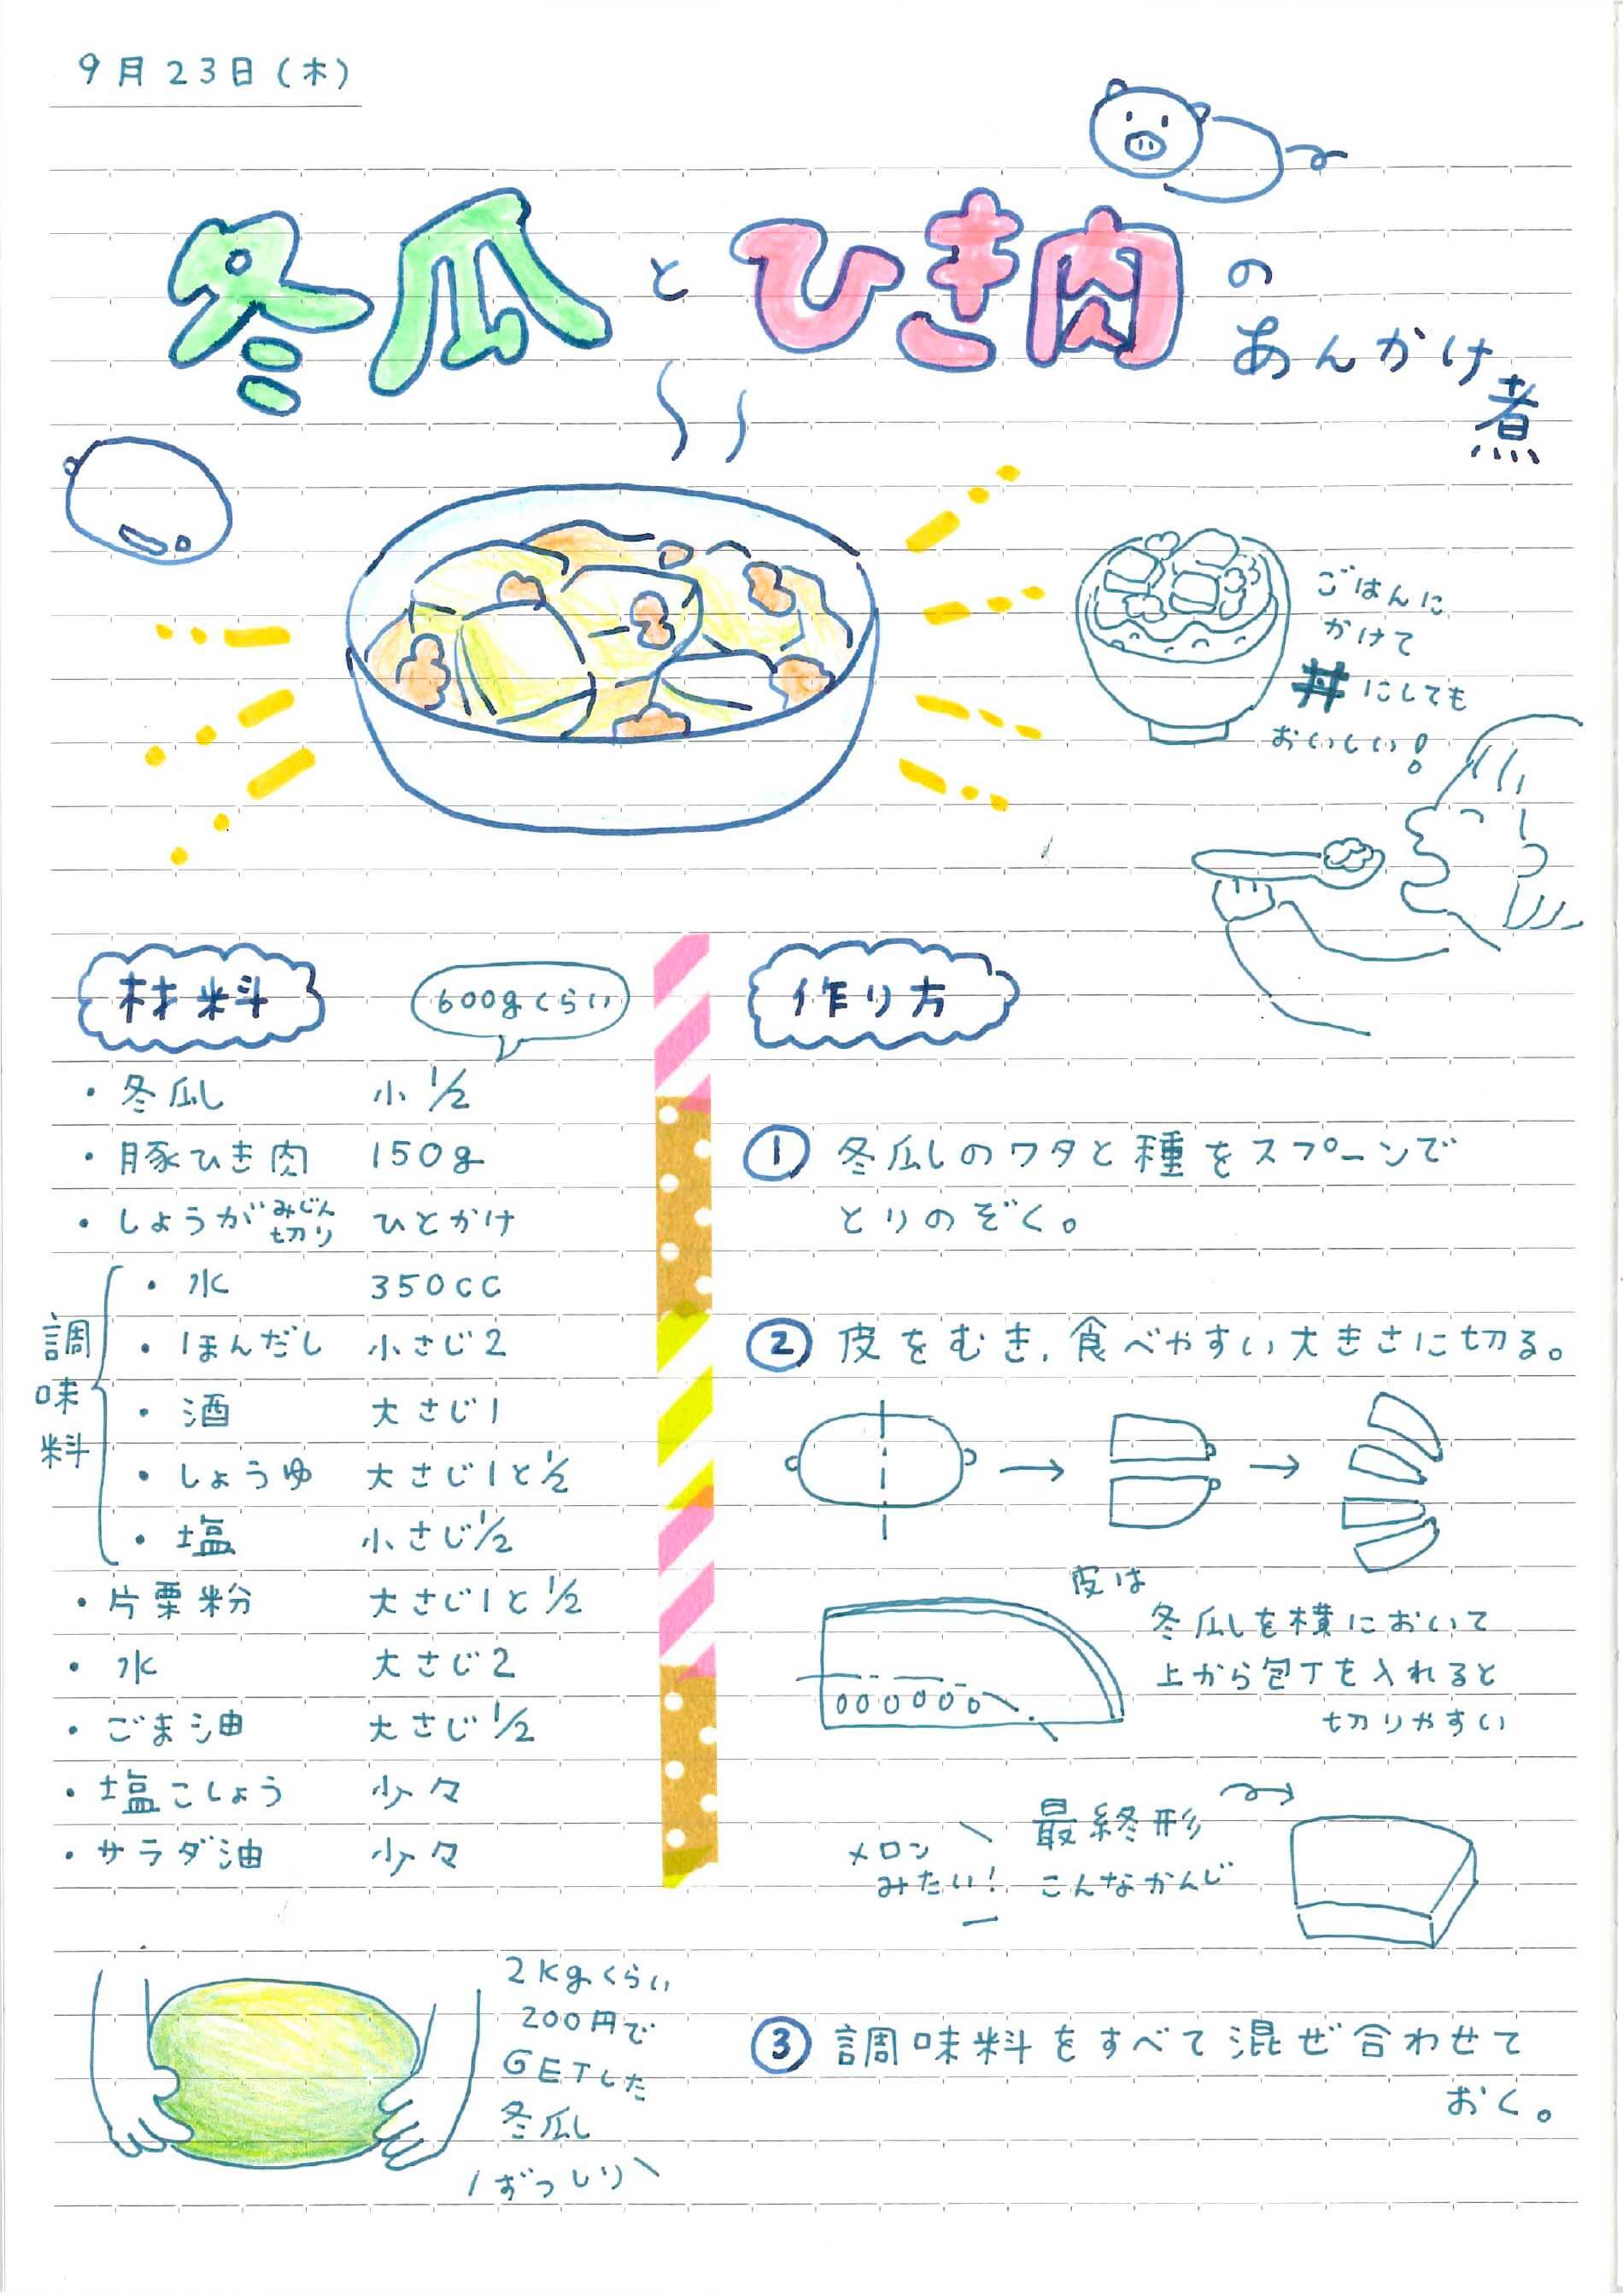 9月23日(木)
冬瓜とひき肉の
あんかけ煮
ごはんに
かけて
丼にしても
おいしい!
材料
600gくらい
・冬瓜 小1/2
・豚ひき肉 150g
・しょうがみじん切り ひとかけ
調味料
・水 350cc
・ほんだし 小さじ2
・酒 大さじ1
・しょうゆ 大さじ1と1/2
・塩 小さじ1/2
・片栗粉 大さじ1と1/2
・水 大さじ2
・ごま油 大さじ1/2
・塩こしょう 少々
・サラダ油 少々
2kgくらい
200円で
GETした
冬瓜
ずっしり
作り方
① 冬瓜のワタと種をスプーンで
とりのぞく。
② 皮をむき、食べやすい大きさに切る。
皮は
冬瓜を横において
上から包丁を入れると
切りやすい
メロン
みたい!
最終形
こんなかんじ
③ 調味料をすべて混ぜ合わせて
おく。